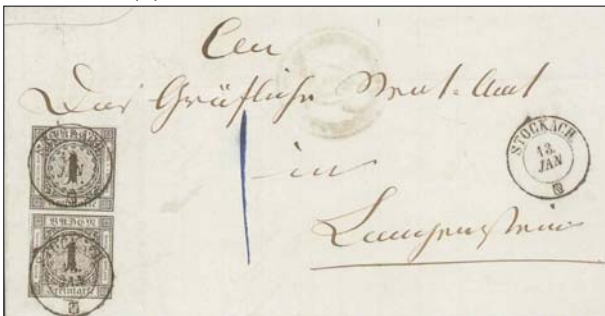 An
Das Gräfliche Rent-Amt
in
Langenstein
STOCKACH
13.
JAN
BADEN
1
Freimarke
BADEN
1
Freimarke